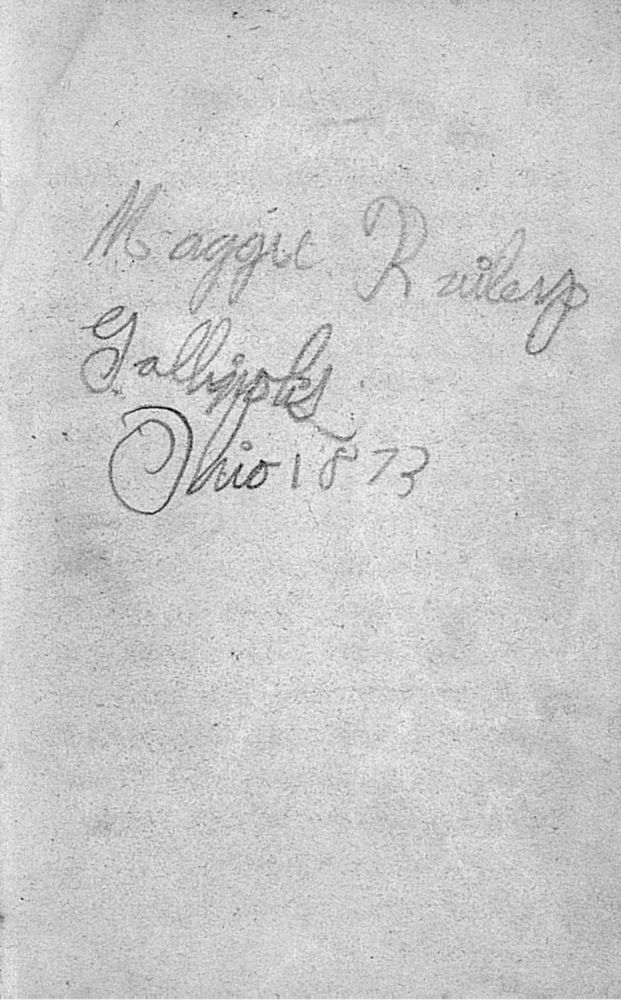 Maggie
Gallipolis
Ohio 1873